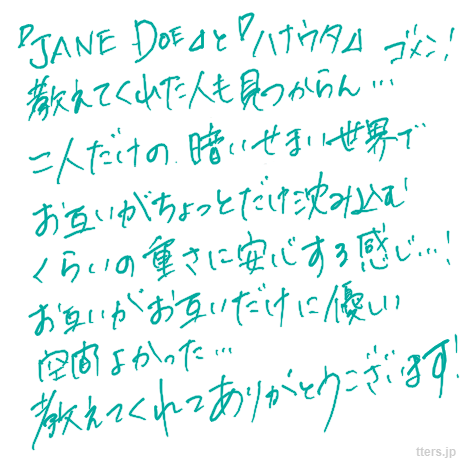 『JANE DOE』と『ハナウタ』ゴメン!
教えてくれた人も見つからん…
二人だけの暗いせまい世界で
お互いがちょっとだけ沈み込む
くらいの重さに安心する感じ…!
お互いがお互いだけに優しい
空間よかった…
教えてくれてありがとうございます!
tters.jp